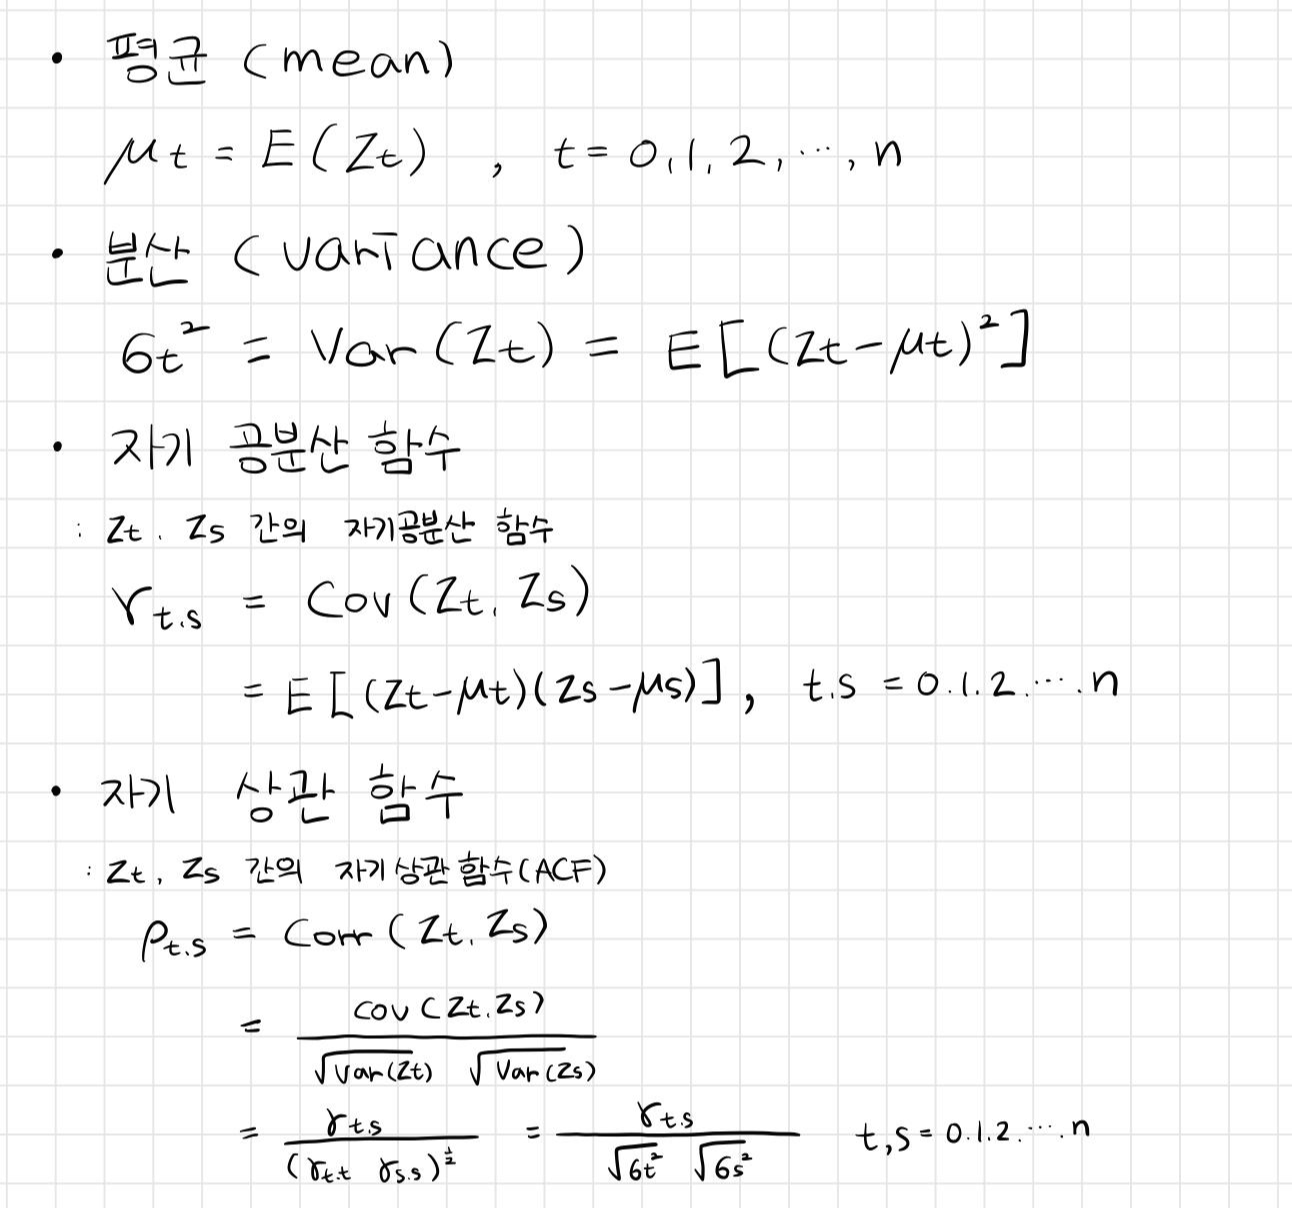 • 평균 (mean)
μt = E(Zt) , t = 0, 1, 2, ⋯, n
• 분산 (variance)
σt² = Var(Zt) = E[(Zt-μt)²]
• 자기 공분산 함수
: Zt. Zs 간의 자기공분산 함수
γt.s = Cov(Zt. Zs)
= E[(Zt-μt)(Zs-μs)], t.s = 0.1.2.⋯.n
• 자기 상관 함수
: Zt, Zs 간의 자기상관함수(ACF)
ρt.s = Corr(Zt. Zs)
= Cov(Zt.Zs) / √Var(Zt) √Var(Zs)
= γt.s / (γt.t γs.s)^½ = γt.s / √σt² √σs² t,s = 0.1.2.⋯.n